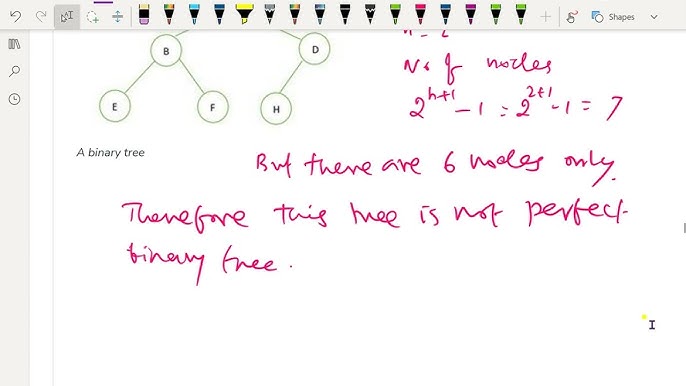 Shapes
B
D
No of nodes
E
F
H
2^(h+1) - 1 = 2^(2+1) - 1 = 7
A binary tree
But there are 6 nodes only.
Therefore this tree is not perfect
binary tree.